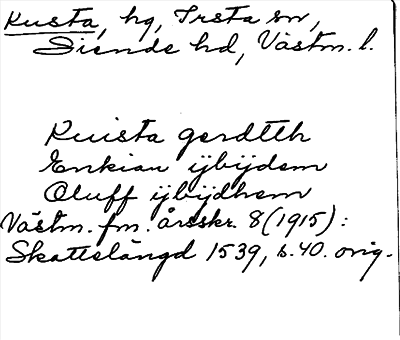 Kusta, hg, Irsta sn,
Siende hd, Västm. l.
Kuista gerdtth
Enkian ijbijdem
Oluff ijbijdhem
Västm. fm. årsskr. 8 (1915):
Skattelängd 1539, s. 40. orig.